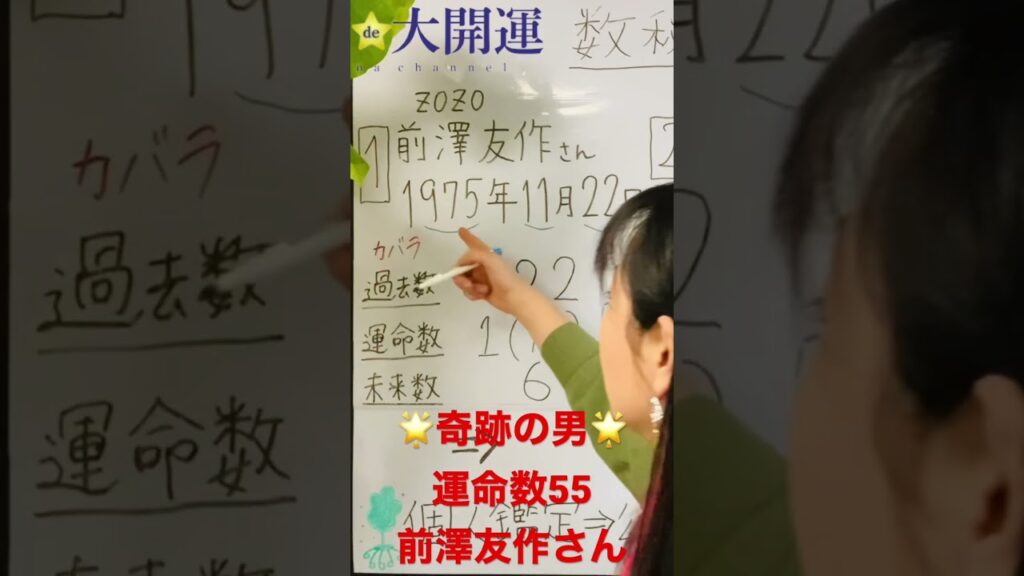 de 大開運
na channel
数秘
ZOZO
1 前澤友作さん
1975年11月22日
カバラ
過去数 22
運命数 1(
未来数 6
🌟奇跡の男🌟
運命数55
個人鑑定⇒
前澤友作さん
カバラ
過去数
運命数